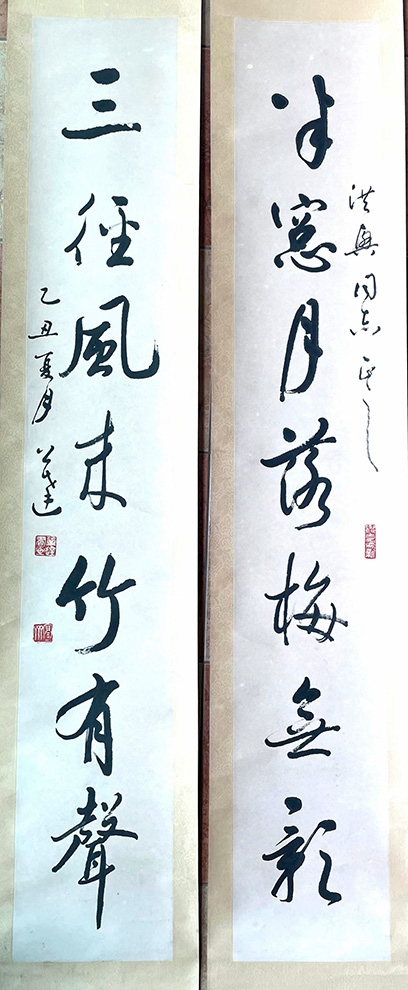 洪兴同志正之
半窓月落梅無影
三徑風来竹有聲
乙丑夏月